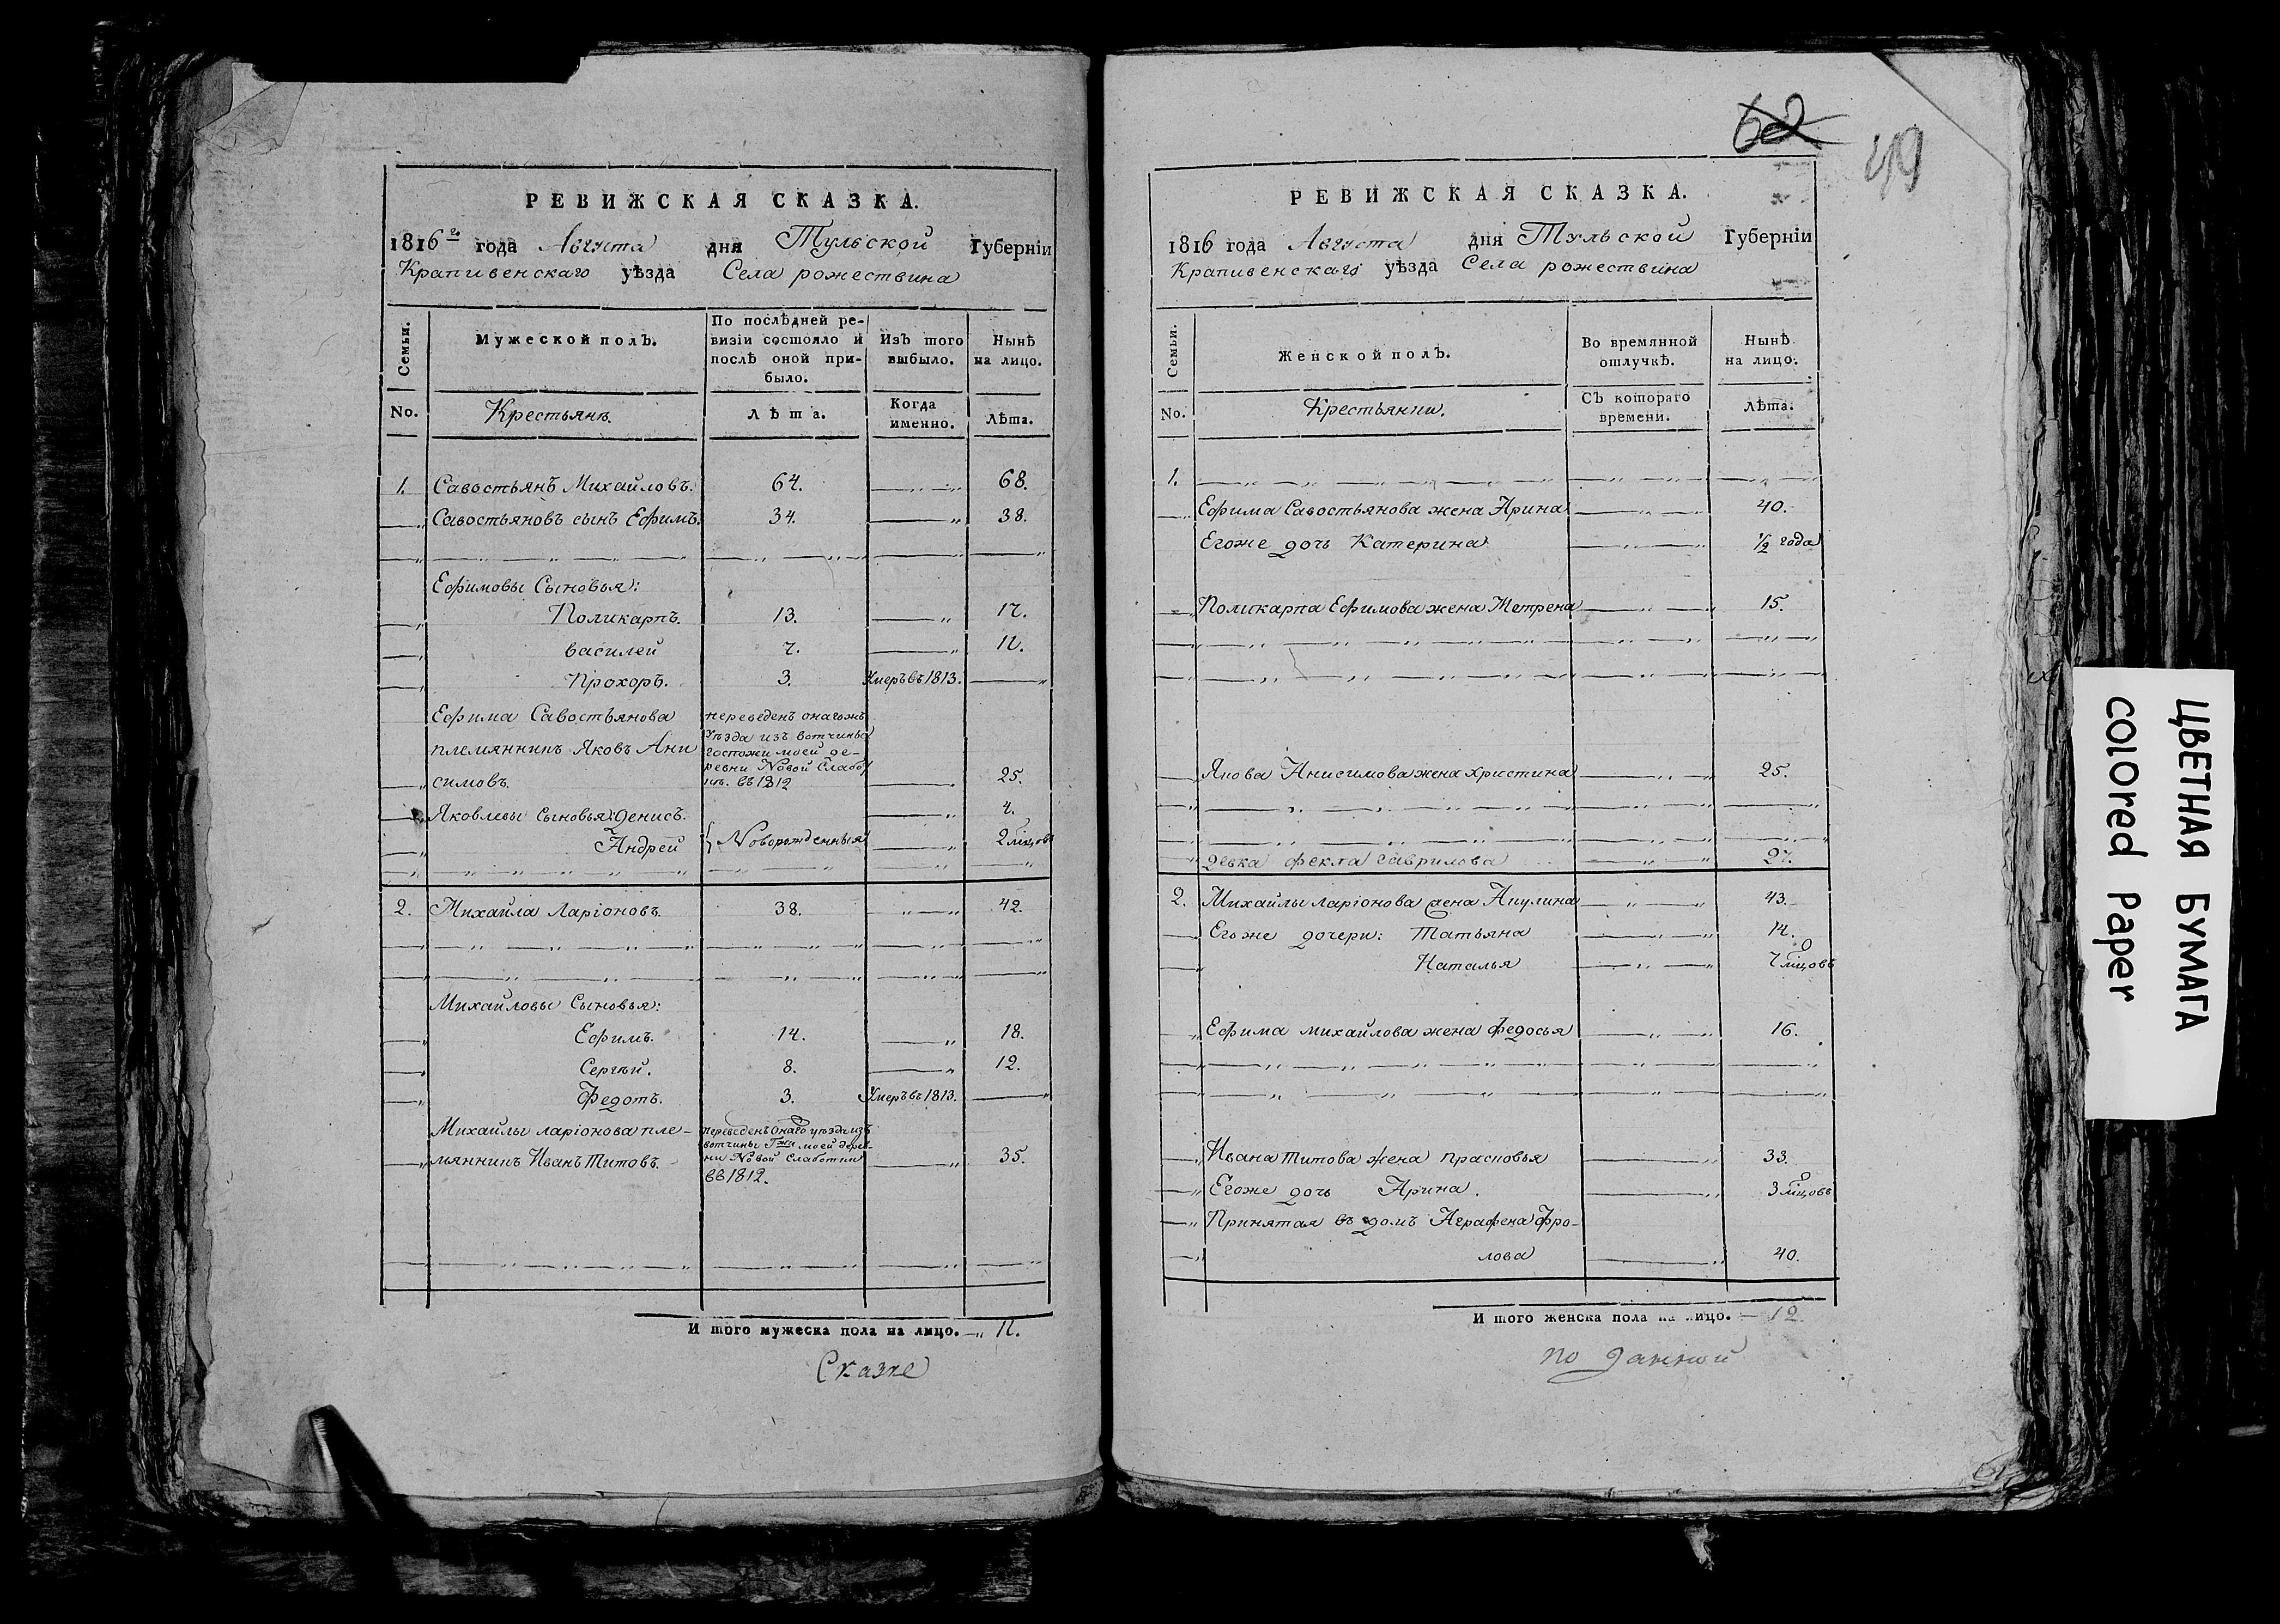 РЕВИЖСКАЯ СКАЗКА.
1816го года Августа дня Тульской Губерніи
Крапивенскаго уѣзда Села рожествина
Семьи.
Мужеской полъ.
По послѣдней ре-
визіи состояло и
послѣ оной при-
было.
Изъ того
выбыло.
Нынѣ
на лицо.
No.
Крестьянъ.
Лѣта.
Когда
именно.
Лѣта.
1. Савостьянъ Михайловъ. 64. 68.
Савостьяновъ сынъ Ефимъ. 34. 38.
Ефимовы Сыновья:
Поликарпъ. 13. 17.
василей 7. 11.
Прохоръ. 3. Умеръ въ 1813.
Ефима Савостьянова
племянникъ Яковъ Ани
симовъ. 25.
переведенъ онагожъ
уѣзда изъ вотчины
госпожи моей де-
ревни Новой Слабот
ки. въ 1812
Яковлевы сыновья: Денисъ. 4.
Андрей Новорожденныя 2 мѣцовъ
2. Михайла Ларіоновъ. 38. 42.
Михайловы Сыновья:
Ефимъ. 14. 18.
Сергѣй. 8. 12.
Федотъ. 3. Умеръ въ 1813.
Михайлы ларіонова пле-
мянникъ Иванъ Титовъ. 35.
переведенъ Онаго уѣзда изъ
вотчины Гжи моей дерев-
ни Новой Слаботки
въ 1812.
И того мужеска пола на лицо. 11.
Сказке
62
49
РЕВИЖСКАЯ СКАЗКА.
1816 года Августа дня Тульской Губерніи
Крапивенскаго уѣзда Села рожествина
Семьи.
Женской полъ.
Во времянной
отлучкѣ.
Нынѣ
на лицо.
No.
Крестьянки.
Съ котораго
времени.
Лѣта.
1.
Ефима Савостьянова жена Арина 40.
Егоже дочь Катерина 1/2 года
Поликарпа Ефимова жена Метрена 15.
Якова Анисимова жена христина 25.
девка фекла гаврилова 27.
2. Михайлы ларіонова жена Акулина 43.
Егоже дочери: Татьяна 14.
Наталья 7 мѣцовъ
Ефима михайлова жена федосья 16.
Ивана титова жена прасковья 33.
Егоже дочь Арина. 3 мѣцовъ
Принятая въ домъ Аграфена Фро-
лова 40.
И того женска пола на лицо. 12.
по данной
ЦВЕТНАЯ БУМАГА
COLORED PAPER